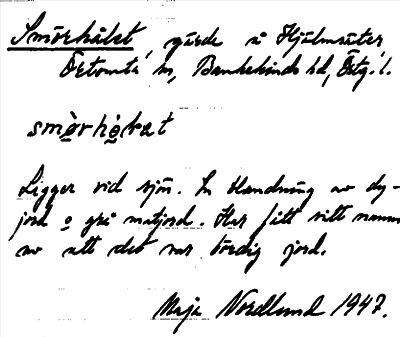 Smörhålet, gärde å Hjälmsäter,
Örtomta sn, Bankekinds hd, Östg. l.
smörhå̱ḷet
Ligger vid sjön. En blandning av dy-
jord o grå matjord. Har fått sitt namn
av att det var bördig jord.
Maja Nordlund 1947.